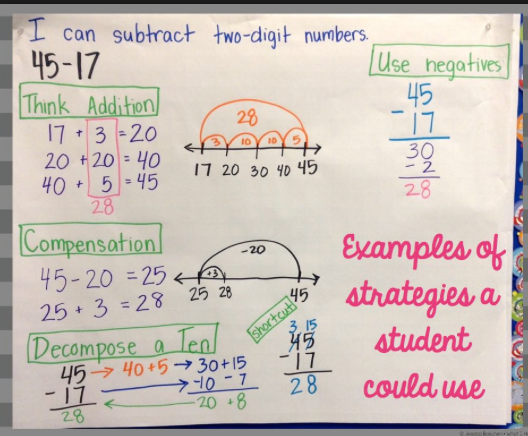 I can subtract two-digit numbers.
45-17
Use negatives
45
- 17
30
- 2
28
Think Addition
17 + 3 = 20
20 + 20 = 40
40 + 5 = 45
28
28
3 10 10 5
17 20 30 40 45
Compensation
45-20 = 25
25 + 3 = 28
-20
+3
25 28 45
Examples of
strategies a
student
could use
Decompose a Ten
45 → 40+5 → 30+15
- 17 → -10 - 7
28 ← 20 + 8
shortcut
3 15
45
- 17
28